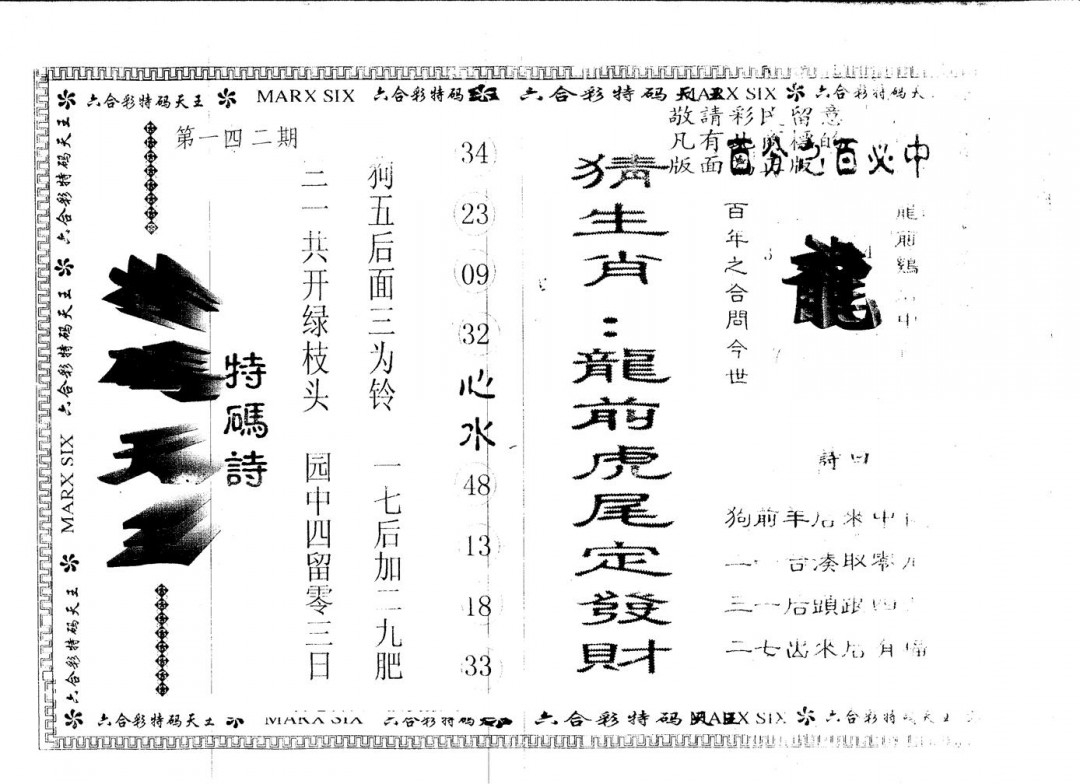 六合彩特码天王 MARX SIX 六合彩特码 六合彩特码天王 MARX SIX 六合彩特码天
敬請彩民留意
凡有 的
版面 版
百分之百必中
第一四二期
特碼詩
狗五后面三为铃 一七后加二九肥
二一共开绿枝头 园中四留零三日
34
23
09
32
心水
48
13
18
33
猜生肖：龍前虎尾定發財
龍前鷄 中
龍
百年之合問今世
詩曰
狗前羊后来中
二一 合湊取零
三一后頭跟四
二七出来后有
六合彩特码天王 MARX SIX 六合彩特码天王
六合彩特码天王 MARX SIX 六合彩特码 六合彩特码天王 MARX SIX 六合彩特码天王